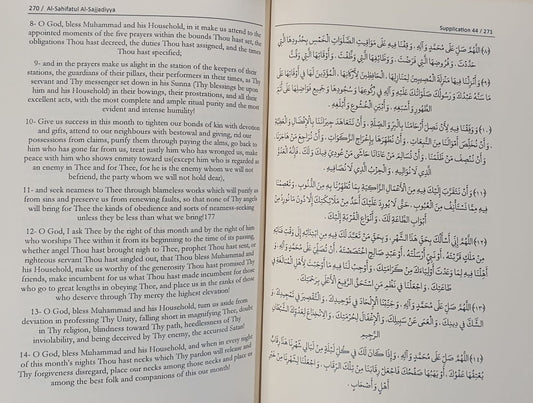 270 / Al-Sahifatul Al-Sajjadiyya
8- O God, bless Muhammad and his Household, in it make us attend to the
appointed moments of the five prayers within the bounds Thou hast set, the
obligations Thou hast decreed, the duties Thou hast assigned, and the times
Thou hast specified;
9- and in the prayers make us alight in the station of the keepers of their
stations, the guardians of their pillars, their performers in their times, as Thy
servant and Thy messenger set down in his Sunna (Thy blessings be upon
him and his Household) in their bowings, their prostrations, and all their
excellent acts, with the most complete and ample ritual purity and the most
evident and intense humility!
10- Give us success in this month to tighten our bonds of kin with devotion
and gifts, attend to our neighbours with bestowal and giving, rid our
possessions from claims, purify them through paying the alms, go back to
him who has gone far from us, treat justly him who has wronged us, make
peace with him who shows enmity toward us(except him who is regarded as
an enemy in Thee and for Thee, for he is the enemy whom we will not
befriend, the party whom we will not hold dear),
11- and seek nearness to Thee through blameless works which will purify us
from sins and preserve us from renewing faults, so that none of Thy angels
will bring for Thee the kinds of obedience and sorts of nearness-seeking
unless they be less than what we bring!177
12- O God, I ask Thee by the right of this month and by the right of him
who worships Thee within it from its beginning to the time of its passing,
whether angel Thou hast brought nigh to Thee, prophet Thou hast sent, or
righteous servant Thou hast singled out, that Thou bless Muhammad and
his Household, make us worthy of the generosity Thou hast promised Thy
friends, make incumbent for us what Thou hast made incumbent for those
who go to great lengths in obeying Thee, and place us in the ranks of those
who deserve through Thy mercy the highest elevation!
13- O God, bless Muhammad and his Household, turn us aside from
deviation in professing Thy Unity, falling short in magnifying Thee, doubt
in Thy religion, blindness toward Thy path, heedlessness of Thy
inviolability, and being deceived by Thy enemy, the accursed Satan!
14- O God, bless Muhammad and his Household, and when in every night
of this month's nights Thou hast necks which Thy pardon will release and
Thy forgiveness disregard, place our necks among those necks and place us
among the best folk and companions of this our month!
Supplication 44 / 271
(٨) اللَّهُمَّ صَلِّ عَلَى مُحَمَّدٍ وَآلِهِ، وَقِفْنَا فِيهِ عَلَى مَوَاقِيتِ الصَّلَوَاتِ الْخَمْسِ بِحُدُودِهَا الَّتِي
حَدَّدْتَ، وَفُرُوضِهَا الَّتِي فَرَضْتَ، وَوَظَائِفِهَا الَّتِي وَظَّفْتَ، وَأَوْقَاتِهَا الَّتِي وَقَّتَّ.
(٩) وَأَنْزِلْنَا فِيهَا مَنْزِلَةَ الْمُصِيبِينَ لِمَنَازِلِهَا، الْحَافِظِينَ لِأَرْكَانِهَا، الْمُؤَدِّينَ لَهَا فِي أَوْقَاتِهَا عَلَى
مَا سَنَّهُ عَبْدُكَ وَرَسُولُكَ صَلَوَاتُكَ عَلَيْهِ وَآلِهِ فِي رُكُوعِهَا وَسُجُودِهَا وَجَمِيعِ فَوَاضِلِهَا عَلَى أَتَمِّ
الطَّهُورِ وَأَسْبَغِهِ، وَأَبْيَنِ الْخُشُوعِ وَأَبْلَغِهِ.
(١٠) وَوَفِّقْنَا فِيهِ لِأَنْ نَصِلَ أَرْحَامَنَا بِالْبِرِّ وَالصِّلَةِ، وَأَنْ نَتَعَاهَدَ جِيرَانَنَا بِالْإِفْضَالِ وَالْعَطِيَّةِ
وَأَنْ نُخَلِّصَ أَمْوَالَنَا مِنَ التَّبِعَاتِ، وَأَنْ نُطَهِّرَهَا بِإِخْرَاجِ الزَّكَوَاتِ، وَأَنْ نُرَاجِعَ مَنْ هَاجَرَنَا،
وَأَنْ نُنْصِفَ مَنْ ظَلَمَنَا، وَأَنْ نُسَالِمَ مَنْ عَادَانَا حَاشَى مَنْ عُودِيَ فِيكَ وَلَكَ، فَإِنَّهُ الْعَدُوُّ
الَّذِي لَا نُوَالِيهِ، وَالْحِزْبُ الَّذِي لَا نُصَافِيهِ.
(١١) وَأَنْ نَتَقَرَّبَ إِلَيْكَ فِيهِ مِنَ الْأَعْمَالِ الزَّاكِيَةِ بِمَا تُطَهِّرُنَا بِهِ مِنَ الذُّنُوبِ، وَتَعْصِمُنَا
فِيهِ مِمَّا نَسْتَأْنِفُ مِنَ الْعُيُوبِ، حَتَّى لَا يُورِدَ عَلَيْكَ أَحَدٌ مِنْ مَلَائِكَتِكَ إِلَّا دُونَ مَا نُورِدُ مِنْ
أَبْوَابِ الطَّاعَةِ لَكَ، وَأَنْوَاعِ الْقُرْبَةِ إِلَيْكَ.
(١٢) اللَّهُمَّ إِنِّي أَسْأَلُكَ بِحَقِّ هَذَا الشَّهْرِ، وَبِحَقِّ مَنْ تَعَبَّدَ لَكَ فِيهِ مِنِ ابْتِدَائِهِ إِلَى وَقْتِ فَنَائِهِ
مِنْ مَلَكٍ قَرَّبْتَهُ، أَوْ نَبِيٍّ أَرْسَلْتَهُ، أَوْ عَبْدٍ صَالِحٍ اخْتَصَصْتَهُ، أَنْ تُصَلِّيَ عَلَى مُحَمَّدٍ وَآلِهِ،
وَأَهِّلْنَا فِيهِ لِمَا وَعَدْتَ أَوْلِيَاءَكَ مِنْ كَرَامَتِكَ، وَأَوْجِبْ لَنَا فِيهِ مَا أَوْجَبْتَ لِأَهْلِ الْمُبَالَغَةِ فِي
طَاعَتِكَ، وَاجْعَلْنَا فِي نَظْمِ مَنِ اسْتَحَقَّ الرَّفِيعَ الْأَعْلَى بِرَحْمَتِكَ.
(١٣) اللَّهُمَّ صَلِّ عَلَى مُحَمَّدٍ وَآلِهِ، وَجَنِّبْنَا الْإِلْحَادَ فِي تَوْحِيدِكَ، وَالتَّقْصِيرَ فِي تَمْجِيدِكَ، وَ
الشَّكَّ فِي دِينِكَ، وَالْعَمَى عَنْ سَبِيلِكَ، وَالْإِغْفَالَ لِحُرْمَتِكَ، وَالِانْخِدَاعَ لِعَدُوِّكَ الشَّيْطَانِ
الرَّجِيمِ
(١٤) اللَّهُمَّ صَلِّ عَلَى مُحَمَّدٍ وَآلِهِ، وَإِذَا كَانَ لَكَ فِي كُلِّ لَيْلَةٍ مِنْ لَيَالِي شَهْرِنَا هَذَا رِقَابٌ
يُعْتِقُهَا عَفْوُكَ، أَوْ يَهَبُهَا صَفْحُكَ فَاجْعَلْ رِقَابَنَا مِنْ تِلْكَ الرِّقَابِ، وَاجْعَلْنَا لِشَهْرِنَا مِنْ خَيْرِ
أَهْلٍ وَأَصْحَابٍ.